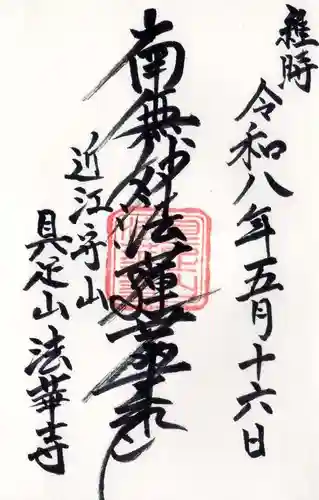 雖時
令和八年五月十六日
南無妙法蓮華経
近江守山
具足山 法華寺